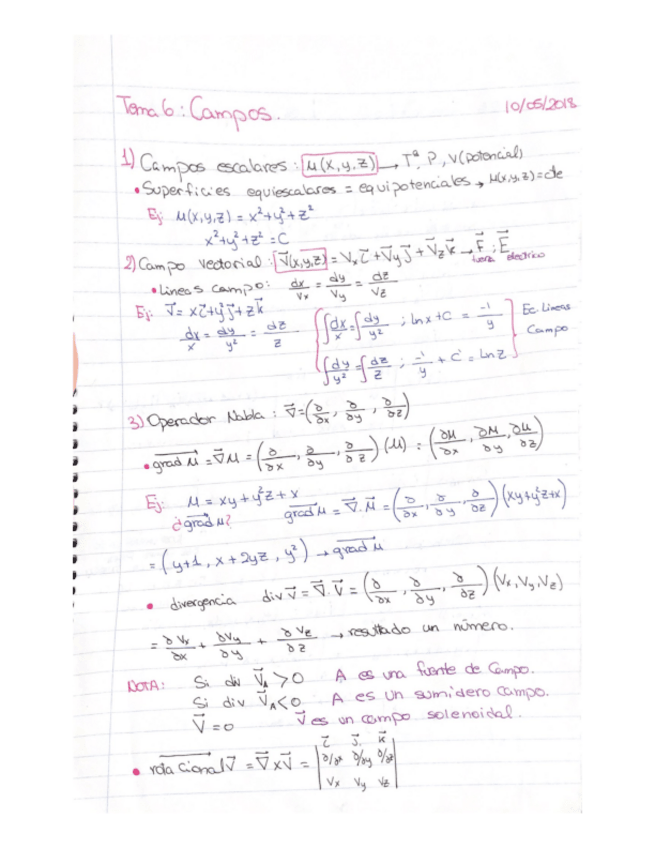 Tema 6: Campos. 10/05/2018
1) Campos escalares: μ(x,y,z) → Tª, P, V (potencial)
• Superficies equiescalares = equipotenciales → μ(x,y,z)=cte
Ej: μ(x,y,z) = x²+y²+z²
x²+y²+z² = C
2) Campo vectorial: V⃗(x,y,z) = Vx i⃗ + V⃗y j⃗ + V⃗z k⃗ → F⃗ ; E⃗
fuerza eléctrico
• Lineas campo: dx/Vx = dy/Vy = dz/Vz
Ej: V⃗ = x i⃗ + y² j⃗ + z k⃗
dx/x = dy/y² = dz/z
∫dx/x = ∫dy/y² ; lnx + C = -1/y
∫dy/y² = ∫dz/z ; -1/y + C = Ln z
Ec. Lineas
Campo
3) Operador Nabla: ∇⃗ = (∂/∂x, ∂/∂y, ∂/∂z)
• grad μ = ∇⃗μ = (∂/∂x, ∂/∂y, ∂/∂z)(μ) = (∂μ/∂x, ∂μ/∂y, ∂μ/∂z)
Ej: μ = xy + y²z + x
¿grad μ? grad μ = ∇⃗·μ⃗ = (∂/∂x, ∂/∂y, ∂/∂z)(xy+y²z+x)
= (y+1, x+2yz, y²) → grad μ
• divergencia div v⃗ = ∇⃗·V⃗ = (∂/∂x, ∂/∂y, ∂/∂z)(Vx, Vy, Vz)
= ∂Vx/∂x + ∂Vy/∂y + ∂Vz/∂z → resultado un número.
NOTA: Si div V⃗A > 0 A es una fuente de Campo.
Si div V⃗A < 0 A es un sumidero campo.
V⃗ = 0 V⃗ es un campo solenoidal.
• rotacional V⃗ = ∇⃗ x V⃗ = | i⃗ j⃗ k⃗ |
| ∂/∂x ∂/∂y ∂/∂z |
| Vx Vy Vz |